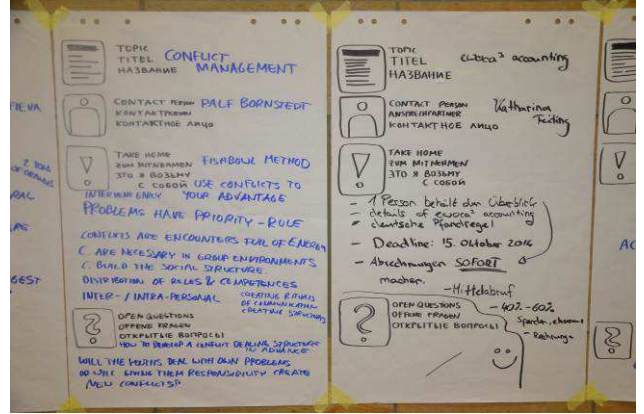 TOPIC
TITEL
НАЗВАНИЕ
CONFLICT
MANAGEMENT
CONTACT PERSON
KONTAKTPERSON
КОНТАКТНОЕ ЛИЦО
RALF BORNSTEDT
TAKE HOME
ZUM MITNEHMEN
ЭТО Я ВОЗЬМУ
С СОБОЙ
FISHBOWL METHOD
USE CONFLICTS TO
YOUR ADVANTAGE
INTERVENE EARLY
PROBLEMS HAVE PRIORITY - RULE
CONFLICTS ARE ENCOUNTERS FULL OF ENERGY
C. ARE NECESSARY IN GROUP ENVIRONMENTS
C. BUILD THE SOCIAL STRUCTURE.
DISTRIBUTION OF ROLES & COMPETENCES
INTER- / INTRA-PERSONAL
CREATING RITUALS
OF COMMUNICATION
CREATING STRUCTURES
OPEN QUESTIONS
OFFENE FRAGEN
ОТКРЫТЫЕ ВОПРОСЫ
HOW TO DEVELOP A CONFLICT DEALING STRUCTURE
IN ADVANCE
WILL THE YOUTHS DEAL WITH OWN PROBLEMS
OR WILL GIVING THEM RESPONSIBILITY CREATE
NEW CONFLICTS?
TOPIC
TITEL
НАЗВАНИЕ
ewoca³ accounting
CONTACT PERSON
ANSPRECHPARTNER
КОНТАКТНОЕ ЛИЦО
Katharina
TAKE HOME
ZUM MITNEHMEN
ЭТО Я ВОЗЬМУ
С СОБОЙ
- 1 Person behält den Überblick
- details of ewoca³ accounting
- deutsche Pfandregel
- Deadline: 15. Oktober 2014
- Abrechnungen SOFORT
machen.
- Mittelabruf
- 40% - 60%
OPEN QUESTIONS
OFFENE FRAGEN
ОТКРЫТЫЕ ВОПРОСЫ